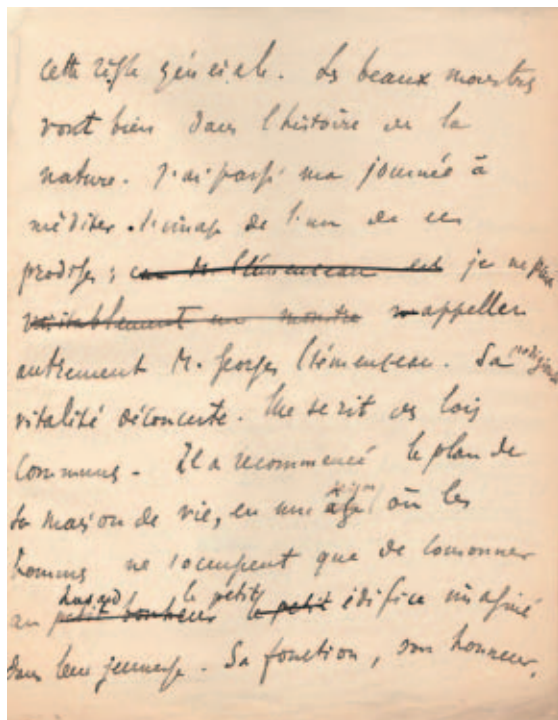 cette règle générale. Les beaux monstres
vont bien dans l'histoire de la
nature. J'ai passé ma journée à
méditer l'image de l'un de ces
prodiges ; car M. Clémenceau est je ne puis
véritablement un monstre appeller
autrement M. Georges Clémenceau. Sa prodigieuse
vitalité déconcerte. Elle se rit des lois
communes. Il a recommencé le plan de
sa maison de vie, en une où les
hommes ne s'occupent que de couronner
au hasard petit bonheur le petit le petit édifice imaginé
dans leur jeunesse. Sa fonction, son honneur,